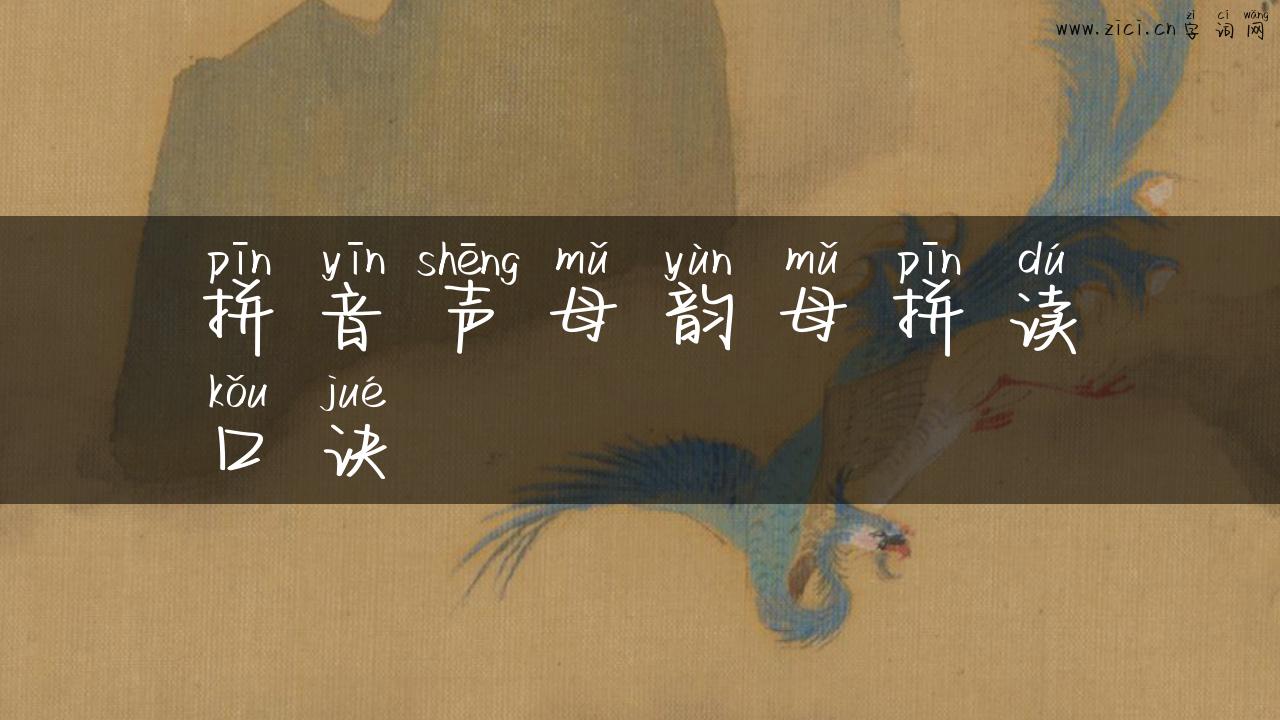 zì cí wǎng
www.zici.cn字词网
pīn yīn shēng mǔ yùn mǔ pīn dú
拼音声母韵母拼读
kǒu jué
口诀